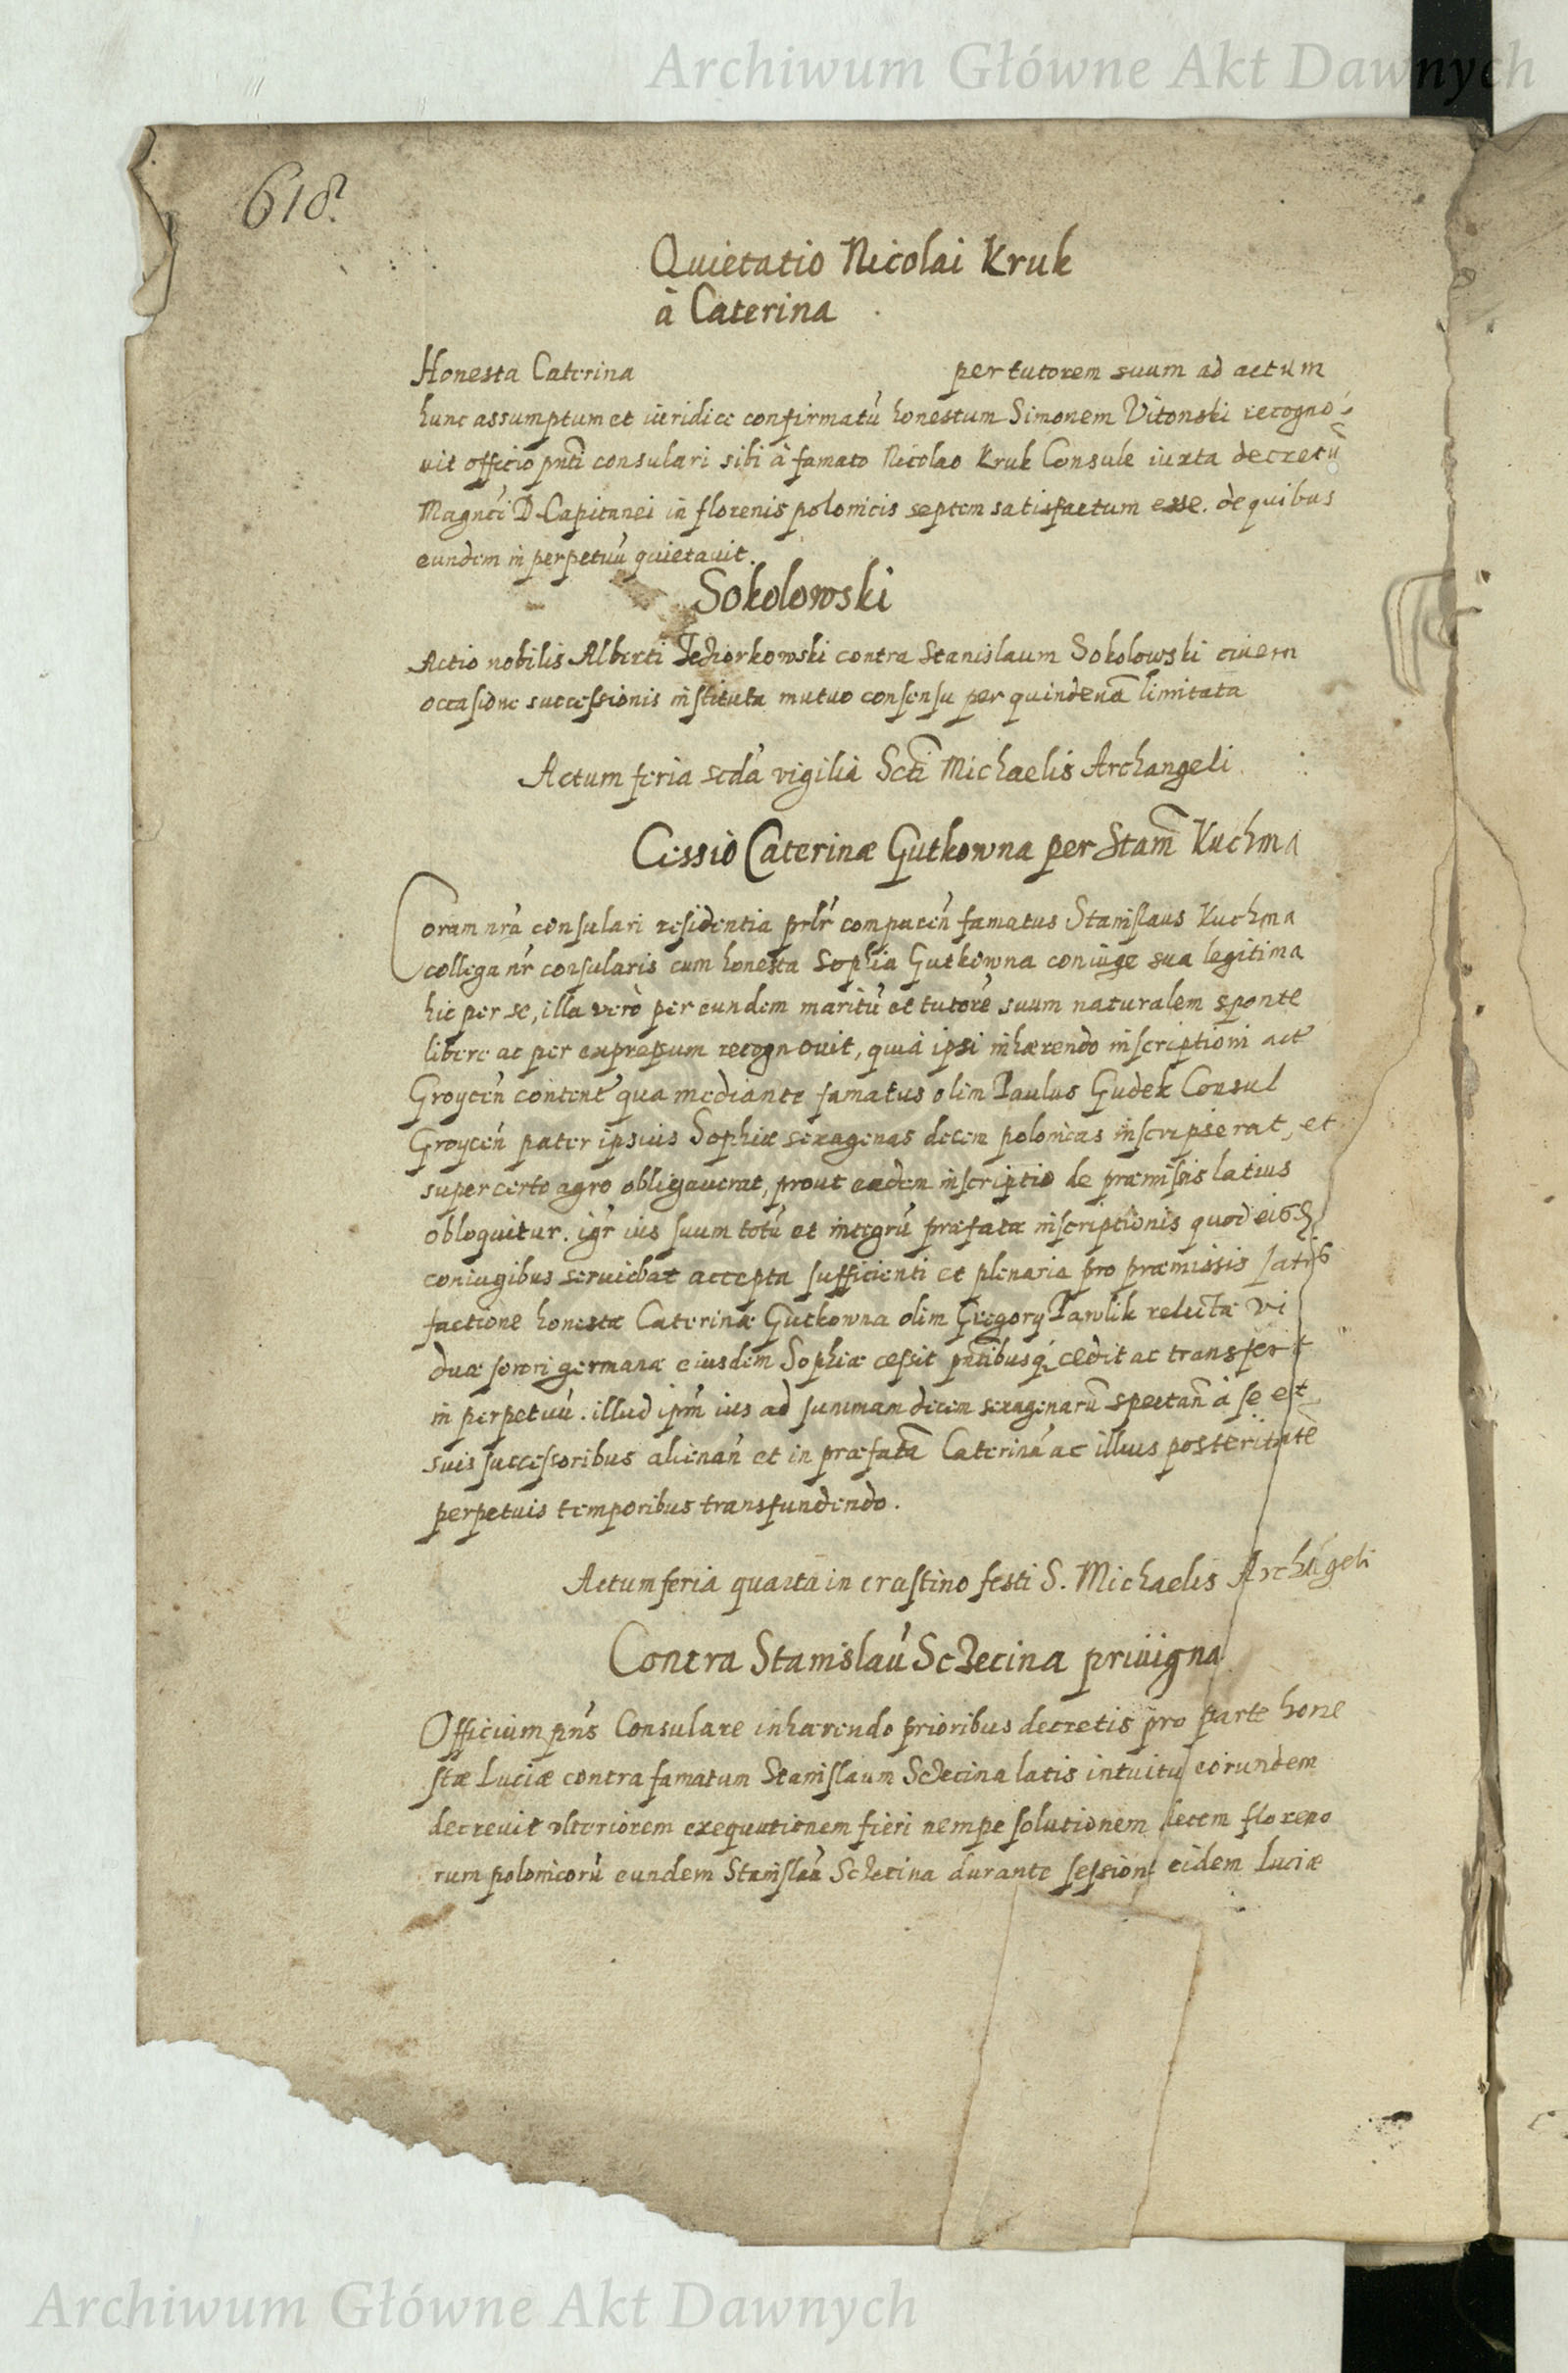 Archiwum Główne Akt Dawnych
618.
Quietatio Nicolai Kruk
à Caterina
Honesta Caterina per tutorem suum ad actum
hunc assumptum et iuridice confirmatũ honestum Simonem Vitonski recogno-
uit officio pnti consulari sibi à famato Nicolao Kruk Consule iuxta decretũ
Magnci D Capitanei in florenis polonicis septem satisfactum esse. de quibus
eundem in perpetuũ quietauit.
Sokolowski
Actio nobilis Alberti contra Stanislaum Sokolowski ciuem
occasione successionis instituta mutuo consensu per quindenã limitata
Actum feria scda vigilia Scti Michaelis Archangeli
Cessio Caterinæ Gutkowna per Stam Kuchma
Coram nrã consulari residentia comparen famatus Stanislaus Kuchma
collega nr consularis cum honesta Sophia Gutkowna coniuge sua legitima
hic per se, illa verò per eundem maritũ et tutorẽ suum naturalem sponte
libere ac per expressum recognouit, quià ipsi inhærendo inscriptioni act
Groycen content qua mediante famatus olim Paulus Gudek Consul
Groycen pater ipsius Sophiæ sexagenas decem polonicas inscripserat, et
super certo agro obligauerat, prout eadem inscriptio de præmissis latius
obloquitur. igr ius suum totũ et integrũ præfatæ inscriptionis quod
coniugibus seruiebat accepta sufficienti et plenaria pro præmissis satis
factione honestæ Caterinæ Gutkowna olim Gregory Pawlik relictæ vi
duæ sorori germanæ eiusdem Sophiæ cessit pntibusq cedit ac transfert
in perpetuũ. illud ipm ius ad summam decem sexagenarũ spectan à se et
suis successoribus alienan et in præfatã Caterinã ac illius posteritatẽ
perpetuis temporibus transfundendo.
Actum feria quarta in crastino festi S. Michaelis Archãgeli
Contra Stanislaũ Sczecina priuigna
Officium pns Consulare inhærendo prioribus decretis pro parte hone
stæ Luciæ contra famatum Stanislaum Sczecina latis intuitu eorundem
decreuit vlteriorem exequutionem fieri nempe solutionem decem floreno
rum polonicorũ eundem Stanislaũ Sczecina durante session eidem Luciæ
Archiwum Główne Akt Dawnych